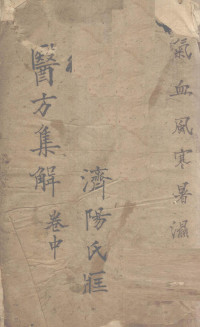 氣血風寒暑濕
醫方集解 卷中
濟陽氏